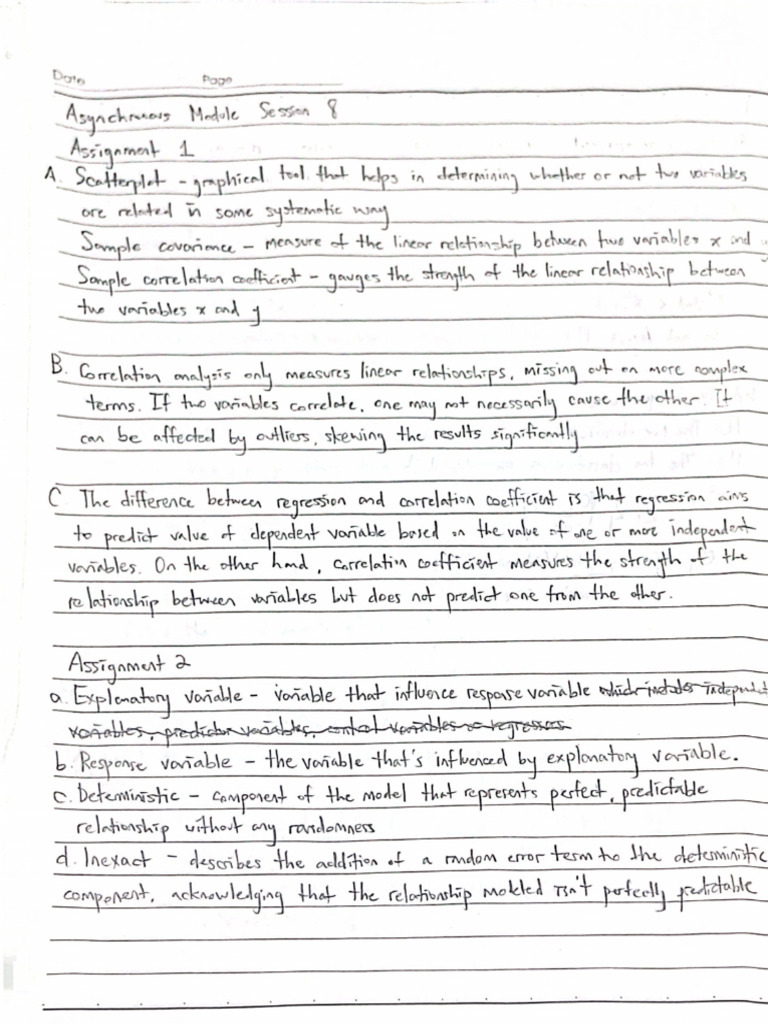 Date Page
Asynchronous Module Session 8
Assignment 1
A. Scatterplot - graphical tool that helps in determining whether or not two variables
are related in some systematic way
Sample covariance - measure of the linear relationship between two variables x and
Sample correlation coefficient - gauges the strength of the linear relationship between
two variables x and y
B. Correlation analysis only measures linear relationships, missing out on more complex
terms. If two variables correlate, one may not necessarily cause the other. It
can be affected by outliers, skewing the results significantly
C. The difference between regression and correlation coefficient is that regression aims
to predict value of dependent variable based on the value of one or more independent
variables. On the other hand, correlation coefficient measures the strength of the
relationship between variables but does not predict one from the other.
Assignment 2
a. Explanatory variable - variable that influence response variable which includes independent
variables, predictor variables, control variables or regressors
b. Response variable - the variable that's influenced by explanatory variable.
c. Deterministic - component of the model that represents perfect, predictable
relationship without any randomness
d. Inexact - describes the addition of a random error term to the deterministic
component, acknowledging that the relationship modeled isn't perfectly predictable